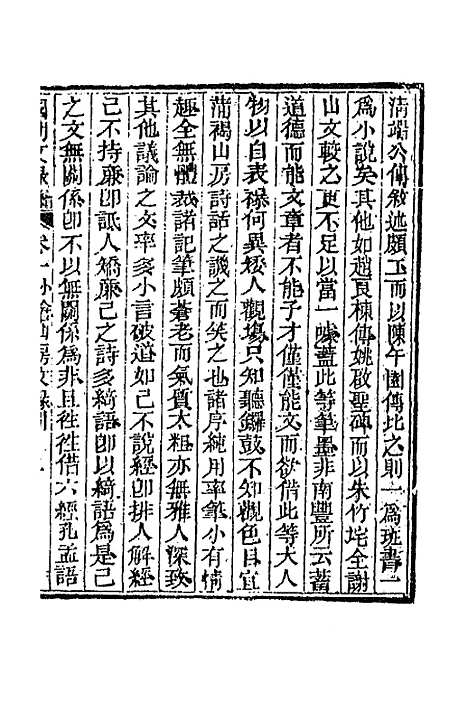 清端公傳敘述頗工而以陳午園傳比之則一爲班書一
爲小說矣其他如趙良棟傳姚啟聖碑而以朱竹垞全謝
山文較之更不足以當一噱蓋此等筆墨非南豐所云蓄
道德而能文章者不能子才僅僅能文而欲借此等大人
物以自表襮何異矮人觀塲只知聽鑼鼓不知觀色目宜
蒲褐山房詩話之譏之而笑之也諸序純用率筆小有情
趣全無體裁諸記筆頗蒼老而氣質太粗亦無雅人深致
其他議論之文率多小言破道如己不說經卽排人解經
己不持廉卽詆人矯廉己之詩多綺語卽以綺語爲是己
之文無關係卽不以無關係爲非且往往借六經孔孟語
國朝文錄 卷一 小倉山房文錄